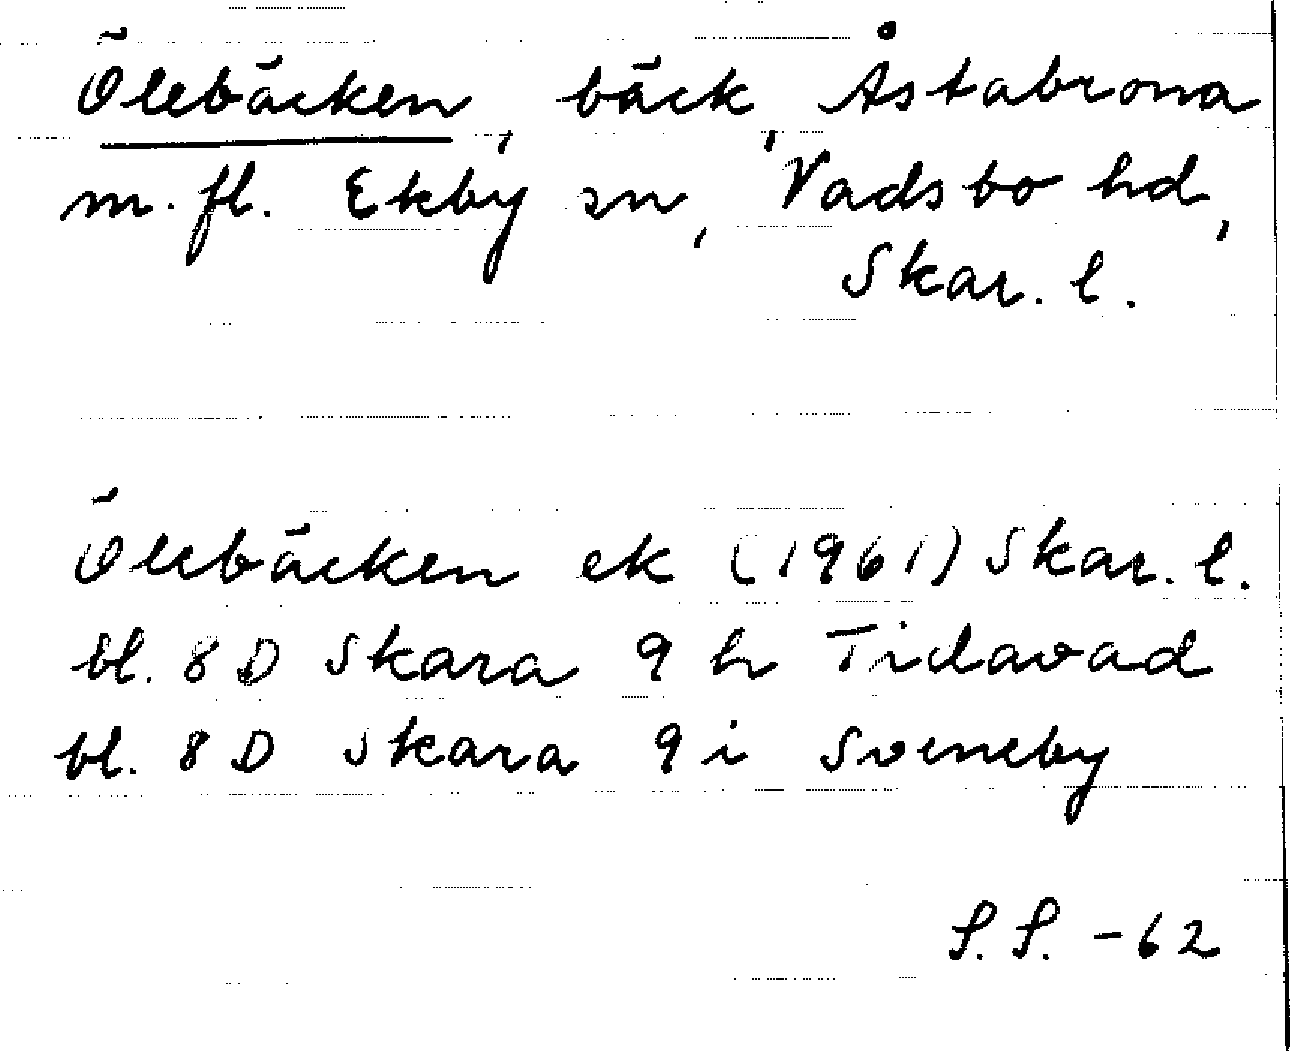 Ölebäcken, bäck, Åstabrona
m. fl. Ekby sn, Vadsbo hd,
Skar. l.
Ölebäcken ek (1961) Skar. l.
bl. 8 D Skara 9 h Tidavad
bl. 8 D Skara 9 i Sveneby
S. S. -62